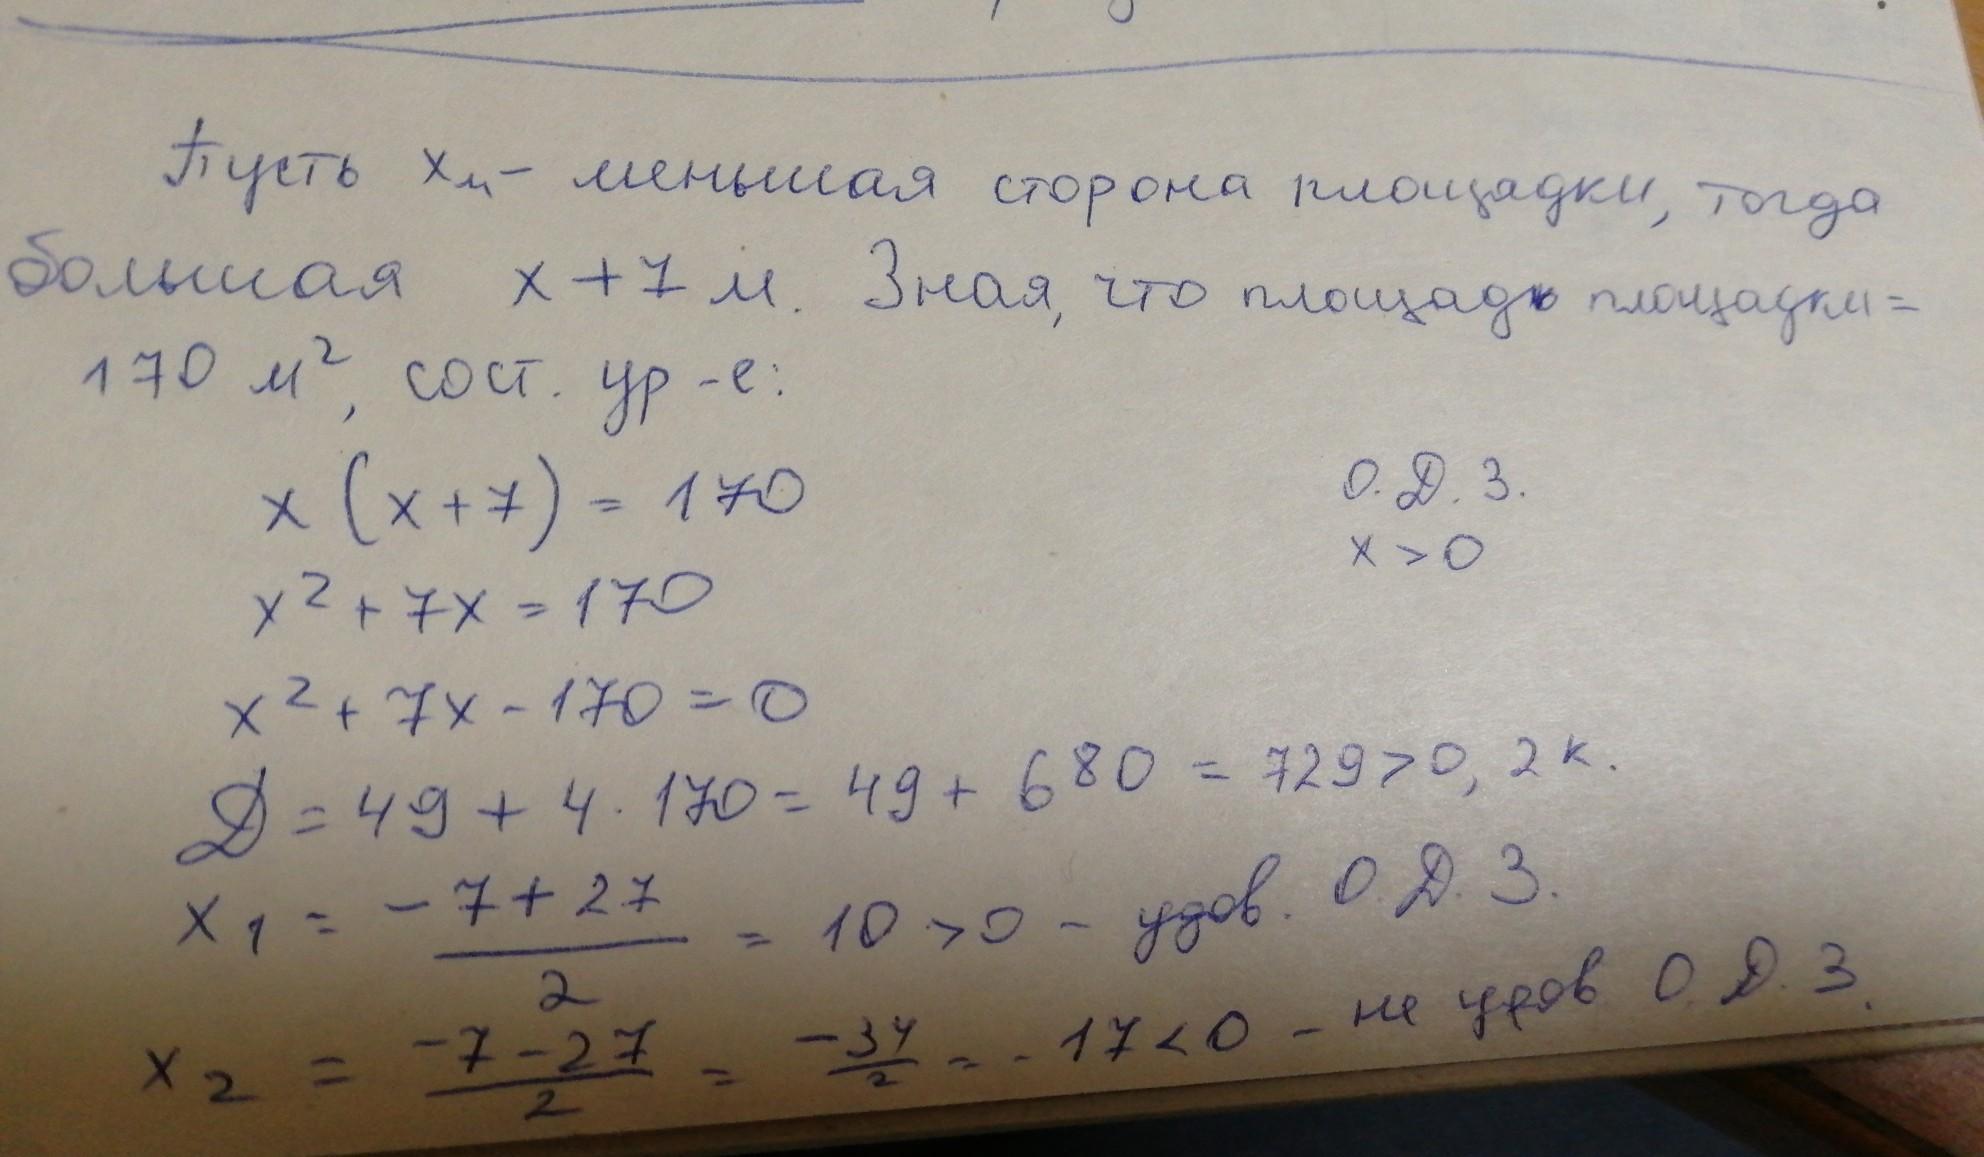 Пусть x м - меньшая сторона площадки, тогда
большая x + 7 м. Зная, что площадь площадки =
170 м², сост. ур-е:
x (x + 7) = 170
О.Д.З.
x > 0
x² + 7x = 170
x² + 7x - 170 = 0
D = 49 + 4 · 170 = 49 + 680 = 729 > 0, 2 к.
x₁ = (-7 + 27)/2 = 10 > 0 - удов. О.Д.З.
x₂ = (-7 - 27)/2 = -34/2 = -17 < 0 - не удов О.Д.З.